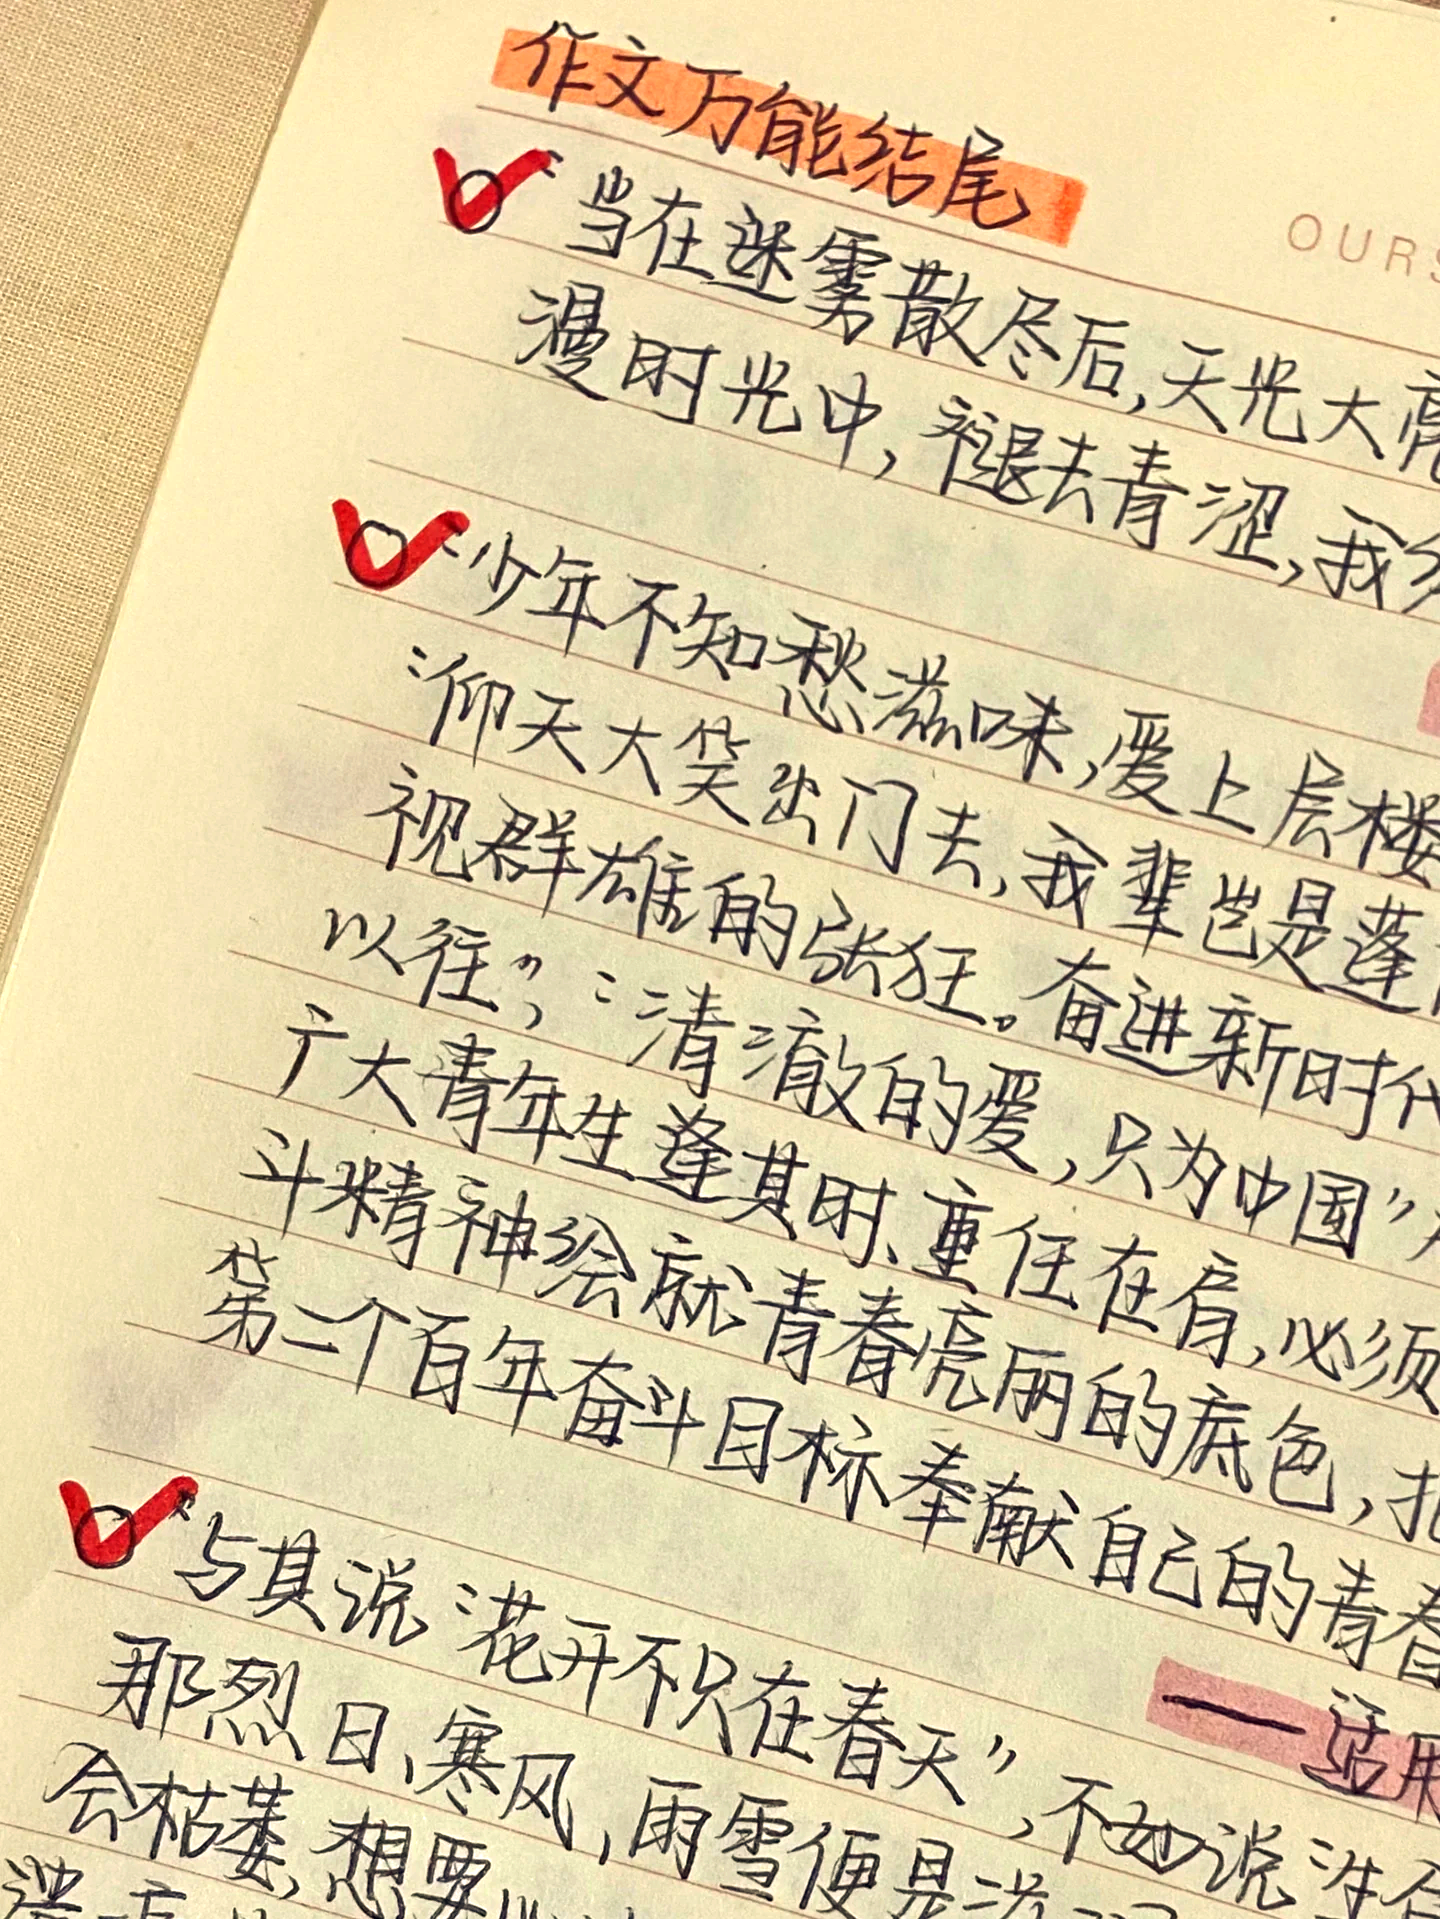 作文万能结尾
OURS
"当在迷雾散尽后,天光大亮
漫时光中,褪去青涩,我
"少年不知愁滋味,爱上层楼
"仰天大笑出门去,我辈岂是蓬
视群雄的张狂。奋进新时代
以往","清澈的爱,只为中国"
广大青年生逢其时、重任在肩,必须
斗精神绘就青春亮丽的底色,
第二个百年奋斗目标奉献自己的青春
——适用
"与其说"花开不只在春天",不如说"生命
那烈日、寒风,雨雪便是
会枯萎,想要